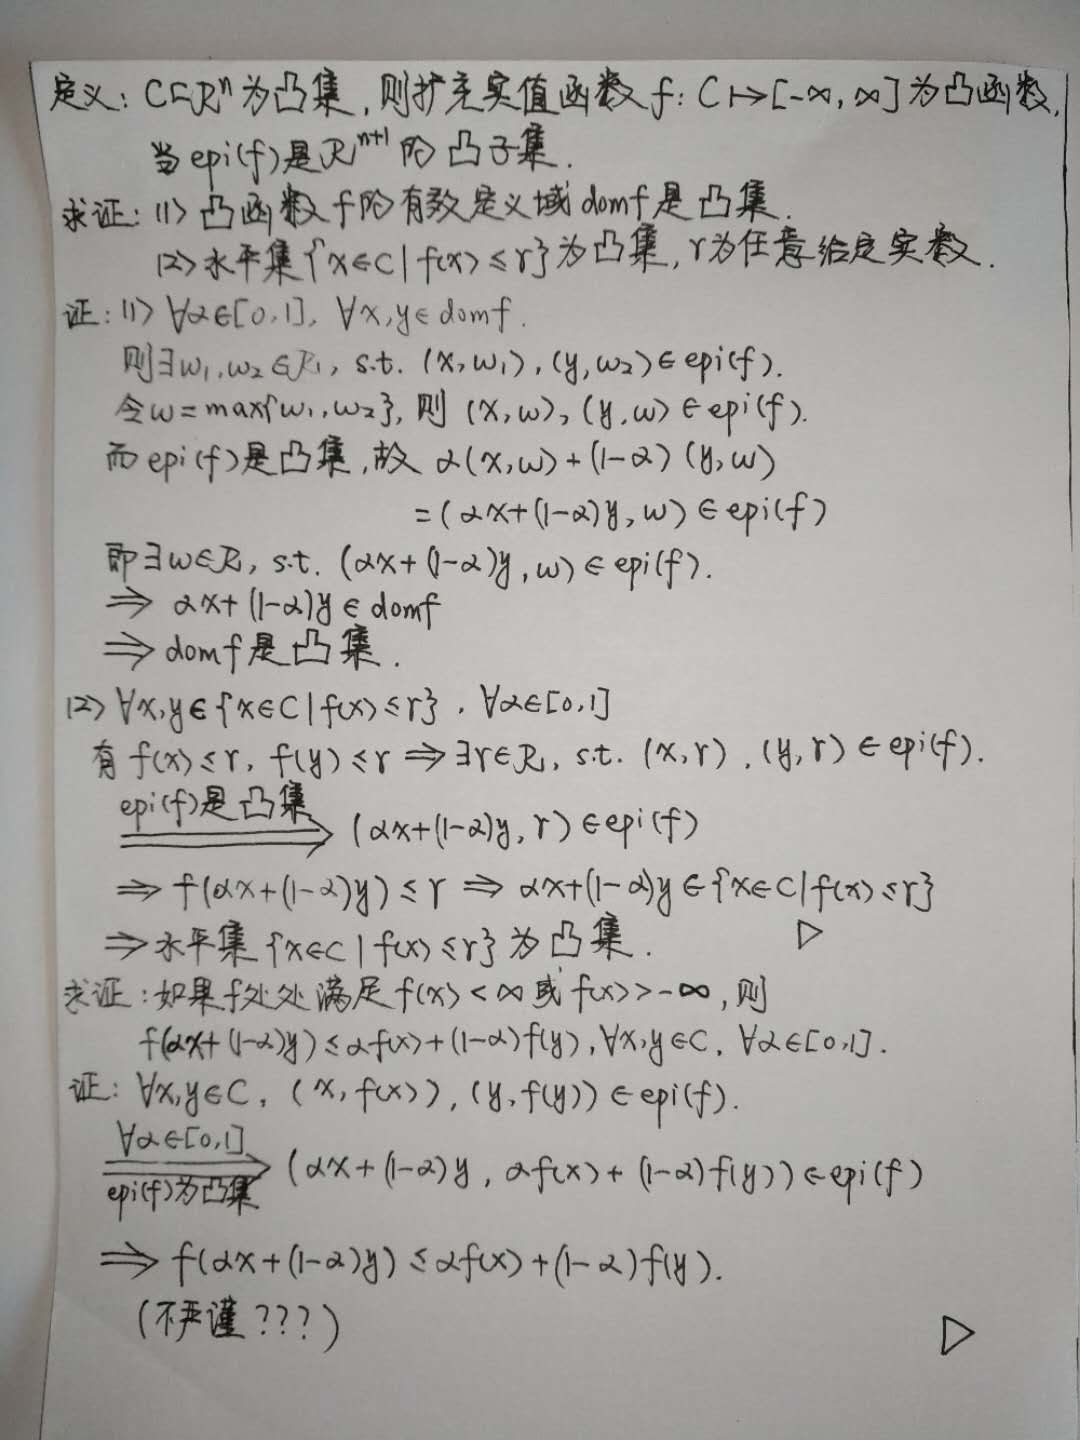 定义: C⊆R^n为凸集,则扩充实值函数f: C↦[-∞,∞]为凸函数,
当epi(f)是R^{n+1}的凸子集.
求证: (1) 凸函数f的有效定义域domf是凸集.
(2) 水平集{x∈C|f(x)≤r}为凸集,r为任意给定实数.
证: (1) ∀α∈[0,1], ∀x,y∈domf.
则∃w₁,w₂∈R, s.t. (x,w₁), (y,w₂)∈epi(f).
令w=max{w₁,w₂},则 (x,w), (y,w)∈epi(f).
而epi(f)是凸集,故 α(x,w)+(1-α)(y,w)
=(αx+(1-α)y,w)∈epi(f)
即∃w∈R, s.t. (αx+(1-α)y,w)∈epi(f).
⇒ αx+(1-α)y∈domf
⇒ domf是凸集.
(2) ∀x,y∈{x∈C|f(x)≤r}, ∀α∈[0,1]
有f(x)≤r, f(y)≤r ⇒ ∃r∈R, s.t. (x,r), (y,r)∈epi(f).
epi(f)是凸集
⇒ (αx+(1-α)y,r)∈epi(f)
⇒ f(αx+(1-α)y)≤r ⇒ αx+(1-α)y∈{x∈C|f(x)≤r}
⇒ 水平集{x∈C|f(x)≤r}为凸集. ▷
求证:如果f处处满足f(x)<∞或f(x)>-∞,则
f(αx+(1-α)y)≤αf(x)+(1-α)f(y),∀x,y∈C, ∀α∈[0,1].
证: ∀x,y∈C, (x,f(x)), (y,f(y))∈epi(f).
∀α∈[0,1]
⇒ (αx+(1-α)y, αf(x)+(1-α)f(y))∈epi(f)
epi(f)为凸集
⇒ f(αx+(1-α)y)≤αf(x)+(1-α)f(y).
(不严谨???) ▷